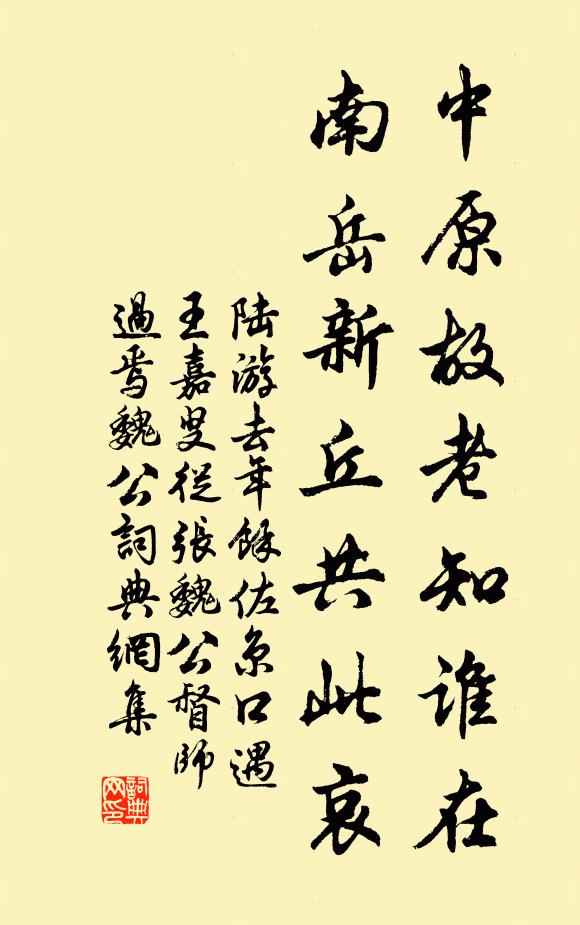 中原故老知谁在
南岳新丘共此哀
陆游去年馀佐京口遇
王嘉叟従张魏公督师
過焉魏公詞典網集
詞典网印